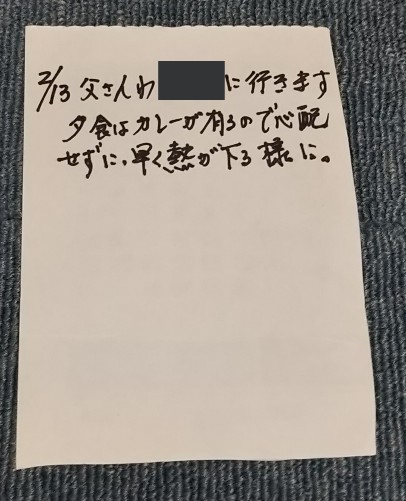 2/13 父さんわ に行きます
夕食はカレーが有るので心配
せずに、早く熱が下る様に。